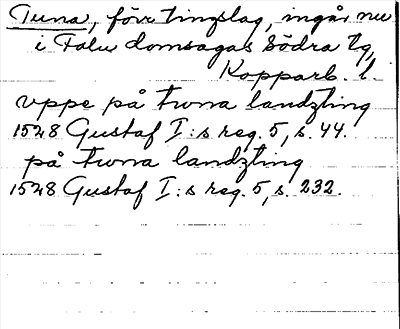 Tuna, förr tingslag, ingår nu
i Falu domsagas Södra tlg,
Kopparb. l.
vppe på twna landzting
1528 Gustaf I:s reg. 5, s. 44.
på twna landzting
1528 Gustaf I:s reg. 5, s. 232.